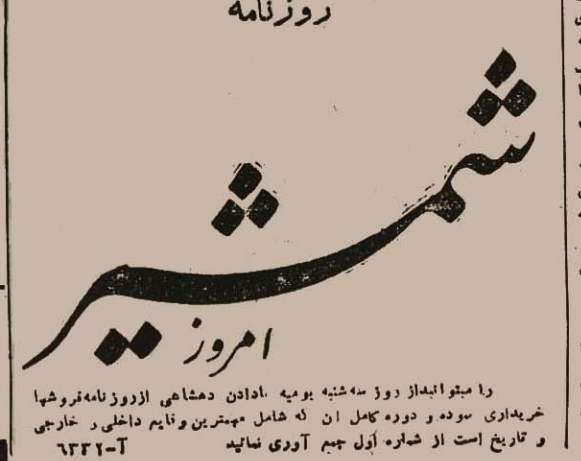 روزنامه
شمشیر
امروز
را میتوانید از روز سه‌شنبه یومیه بادادن دهشاهی ازروزنامه‌فروشها
خریداری نموده و دوره کامل آن که شامل مهمترین وقایع داخلی و خارجی
و تاریخ است از شماره اول جمع آوری نمائید آ-۶۳۳۲